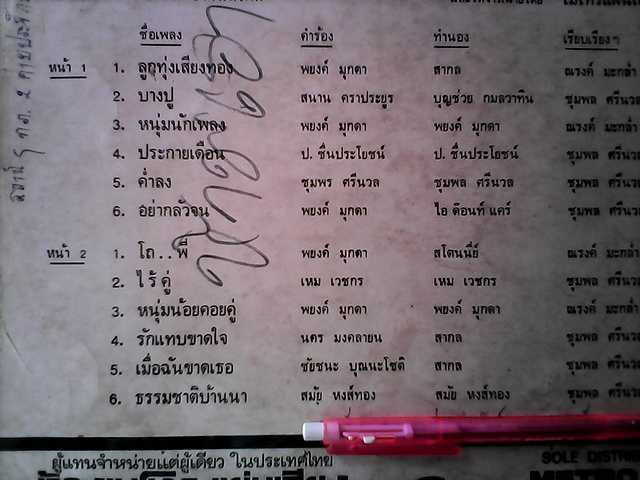 ชื่อเพลง คำร้อง ทำนอง เรียบเรียงฯ
หน้า 1 1. ลูกทุ่งเสียงทอง พยงค์ มุกดา สากล ณรงค์ มะกล่ำ
2. บางปู สนาน คราประยูร บุญช่วย กมลวาทิน ชุมพล ศรีนวล
3. หนุ่มนักเพลง พยงค์ มุกดา พยงค์ มุกดา ณรงค์ มะกล่ำ
4. ประกายเดือน ป. ชื่นประโยชน์ ป. ชื่นประโยชน์ ชุมพล ศรีนวล
5. ค่ำลง ชุมพร ศรีนวล ชุมพล ศรีนวล ชุมพล ศรีนวล
6. อย่ากลัวจน พยงค์ มุกดา ไอ ด๊อนท์ แคร์ ชุมพล ศรีนวล
หน้า 2 1. โถ..พี่ พยงค์ มุกดา สโตนนี่ย์ ณรงค์ มะกล่ำ
2. ไร้คู่ เหม เวชกร เหม เวชกร ชุมพล ศรีนวล
3. หนุ่มน้อยคอยคู่ พยงค์ มุกดา พยงค์ มุกดา ณรงค์ มะกล่ำ
4. รักแทบขาดใจ นคร มงคลายน สากล ชุมพล ศรีนวล
5. เมื่อฉันขาดเธอ ชัยชนะ บุณนะโชติ สากล ชุมพล ศรีนวล
6. ธรรมชาติบ้านนา สมัย หงส์ทอง สมัย หงส์ทอง ชุมพล ศรีนวล
ผู้แทนจำหน่ายแต่ผู้เดียว ในประเทศไทย SOLE